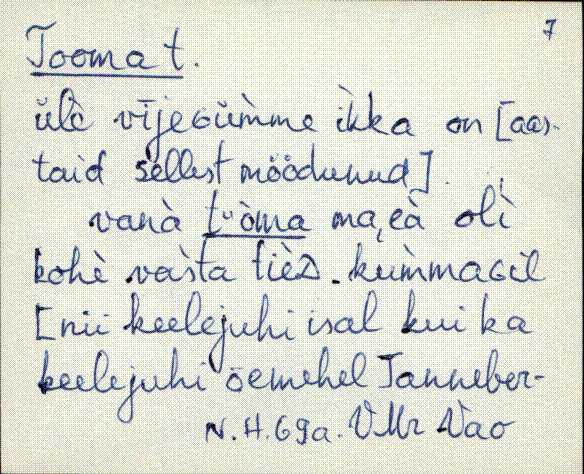 7
Tooma t.
üle vījeɢüm̀me ìkka on [aas-
taid sellest möödunud].
vanà tᵘòma maɢà olì
kohè vas̀ta tiè᷊. kum̀maɢil
[nii keelejuhi isal kui ka
keelejuhi õemehel Tanneber-
N.H.69a. VMr Vao